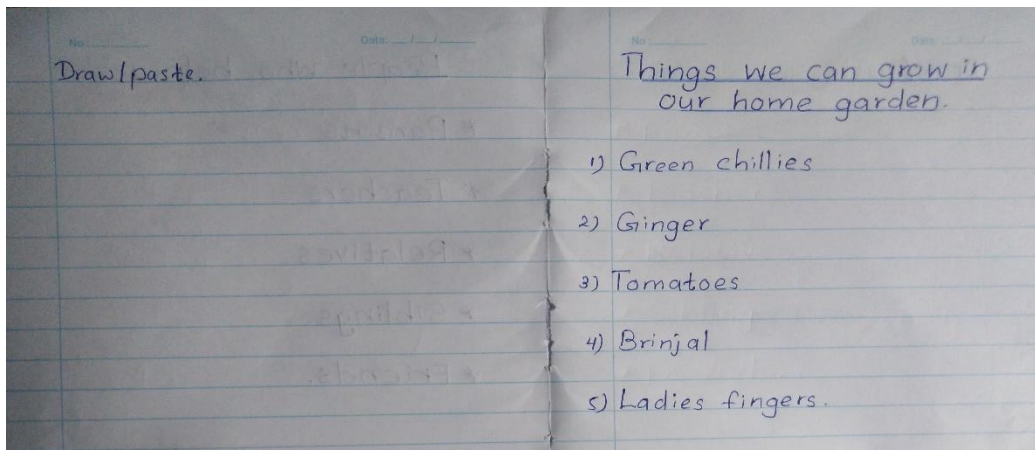 No:
Date: __/__/__
Draw/paste.
No:
Date: __/__/__
Things we can grow in
our home garden.
1) Green chillies
2) Ginger
3) Tomatoes
4) Brinjal
5) Ladies fingers.